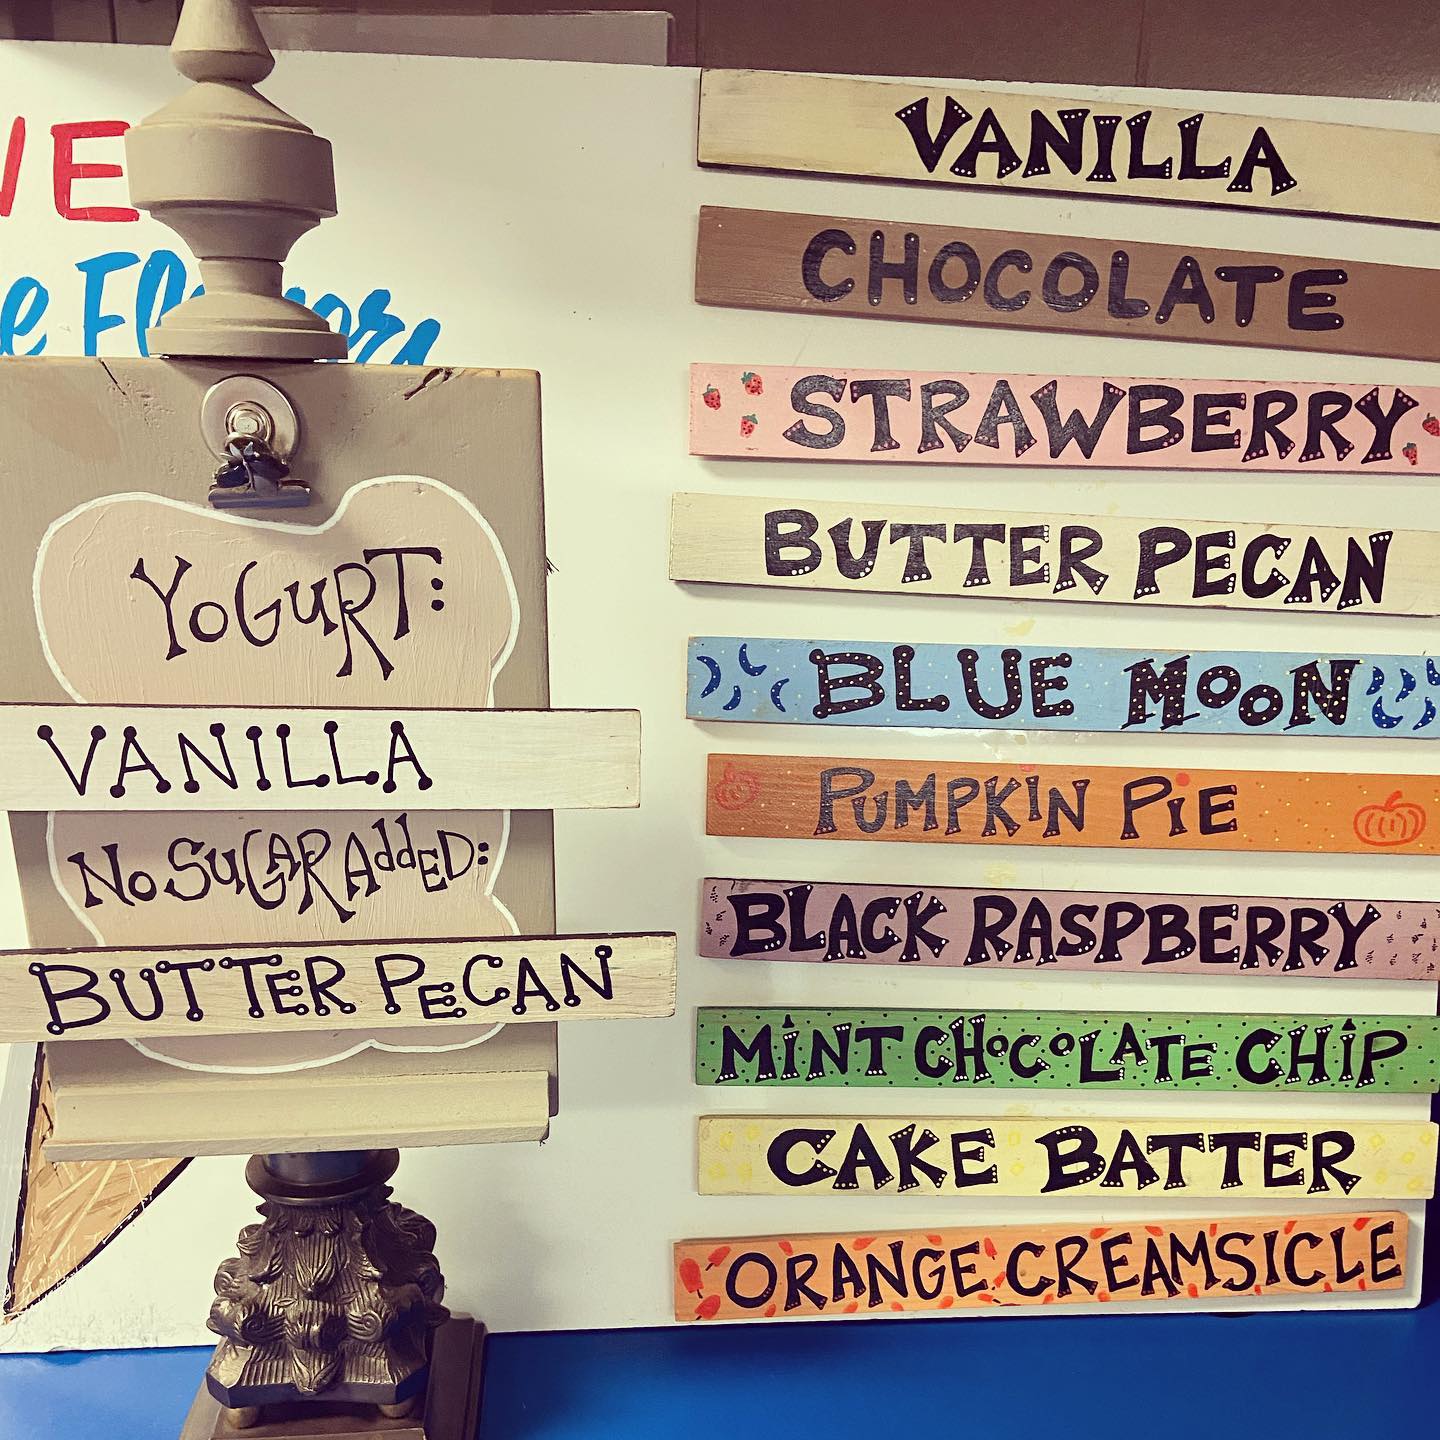 Yogurt:
VANILLA
No Sugar Added:
BUTTER PECAN
VANILLA
CHOCOLATE
STRAWBERRY
BUTTER PECAN
BLUE MOON
PUMPKIN PiE
BLACK RASPBERRY
MiNT CHoCoLATE CHiP
CAKE BATTER
ORANGE CREAMSICLE